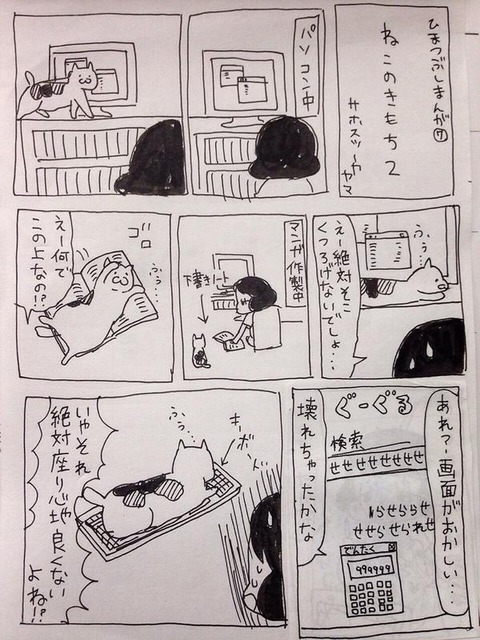 ひまつぶしまんが⑦
ねこのきもち2
サホスツーカヤマ
パソコン中
ふぅ…
えー絶対そこ
くつろげないでしょ…
マンガ作製中
下書きノート
ゴロ
ふぅ…
えー何で
この上なの!?
あれっー画面がおかしい…
ぐーぐる
検索
せせせせせせせ
せせらせられせ
でんたく
999999
壊れちゃったかな
キーボード
ふぅ…
いやそれ
絶対座り心地良くない
よね!?